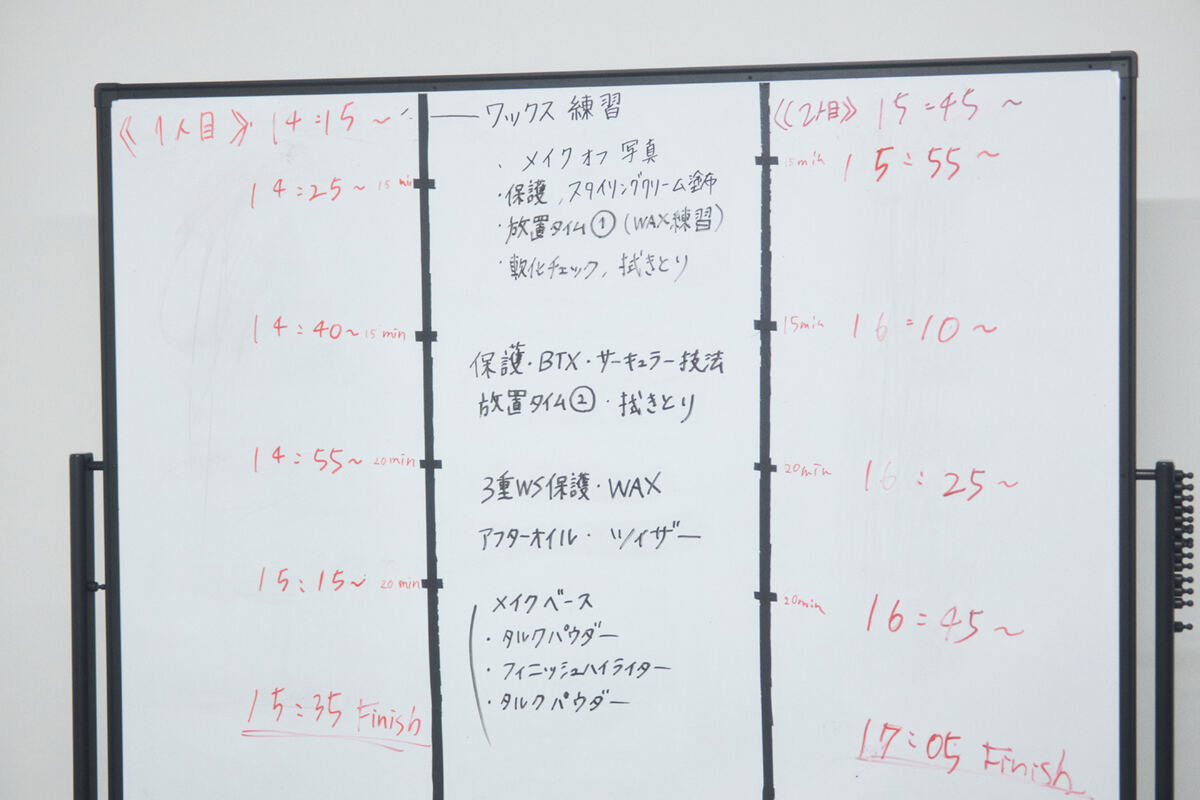 《1人目》 14:15~
14:25~ 15 min
14:40~ 15 min
14:55~ 20 min
15:15~ 20 min
15:35 Finish
ワックス 練習
・メイクオフ 写真
・保護, スタイリングクリーム塗布
・放置タイム① (WAX練習)
・軟化チェック, 拭きとり
保護・BTX・サーキュラー技法
放置タイム②・拭きとり
3重WS保護・WAX
アフターオイル・ツイザー
メイクベース
・タルクパウダー
・フィニッシュハイライター
・タルクパウダー
《2人目》 15:45~
15min 15:55~
15min 16:10~
20min 16:25~
20min 16:45~
17:05 Finish